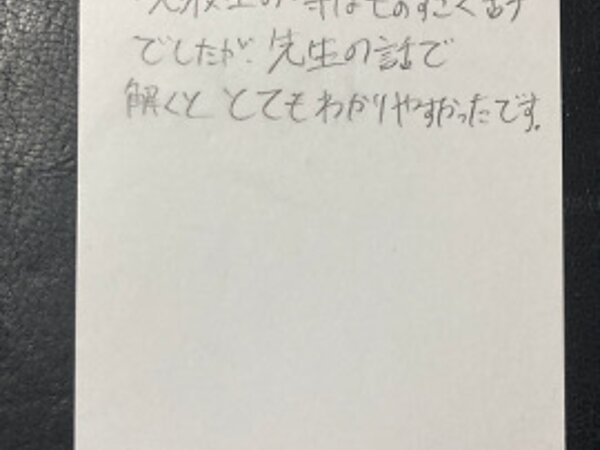 はものすごく
でしたが、先生の話で
解くと とてもわかりやすかったです。